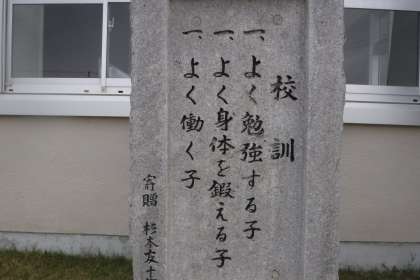 校訓
一、よく勉強する子
一、よく身体を鍛える子
一、よく働く子
寄贈 杉本友